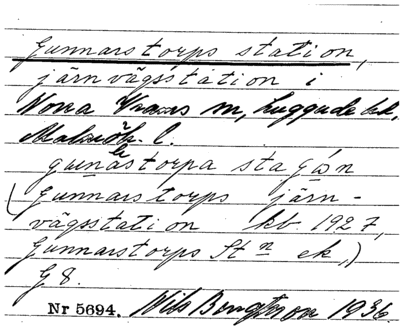 Gunnarstorps station,
järnvägsstation i
Norra Vrams sn, Luggude hd,
Malmöh. l.
gunastorpa stagon
(Gunnarstorps järn-
vägsstation kb 1927,
Gunnarstorps St<sup>n</sup> ek,)
G 8.
Nr 5694. Nils Bengtsson 1936.